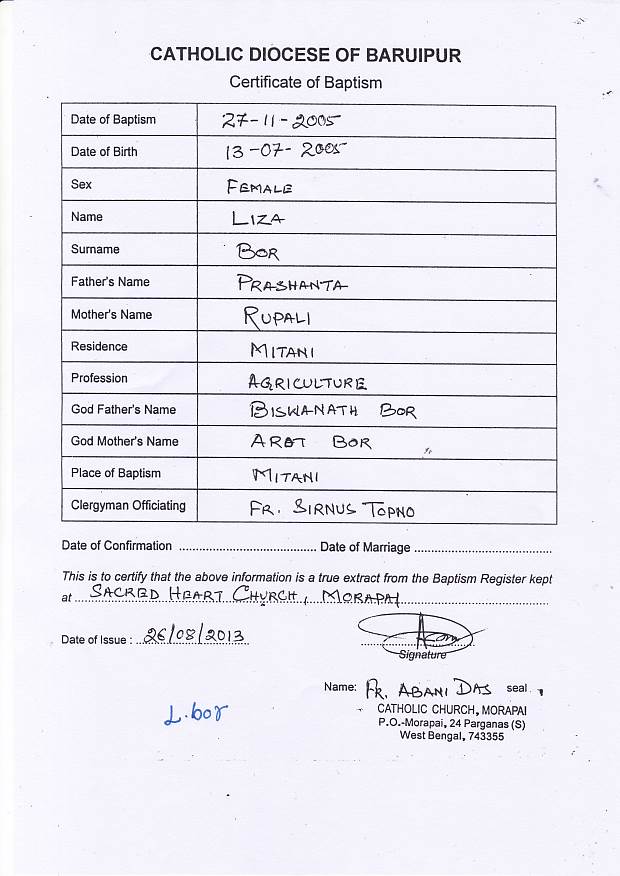 CATHOLIC DIOCESE OF BARUIPUR
Certificate of Baptism
Date of Baptism 27-11-2005
Date of Birth 13-07-2005
Sex FEMALE
Name LIZA
Surname BOR
Father's Name PRASHANTA
Mother's Name RUPALI
Residence MITANI
Profession AGRICULTURE
God Father's Name BISWANATH BOR
God Mother's Name BOR
Place of Baptism MITANI
Clergyman Officiating FR. SIRNUS TOPNO
Date of Confirmation ........................................ Date of Marriage ........................................
This is to certify that the above information is a true extract from the Baptism Register kept
at SACRED HEART CHURCH, MORAPAI
Date of Issue : 26/08/2013
Signature
Name: FR. ABANI DAS seal
L. bor
CATHOLIC CHURCH, MORAPAI
P.O.-Morapai, 24 Parganas (S)
West Bengal, 743355